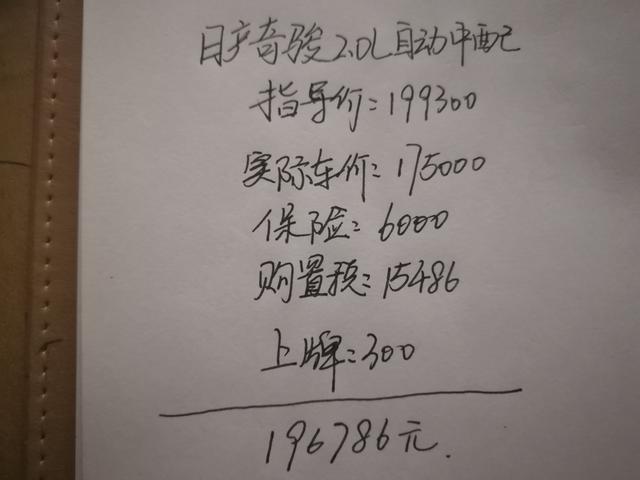 日产奇骏2.0L自动中配
指导价:199300
实际车价:175000
保险:6000
购置税:15486
上牌:300
196786元.